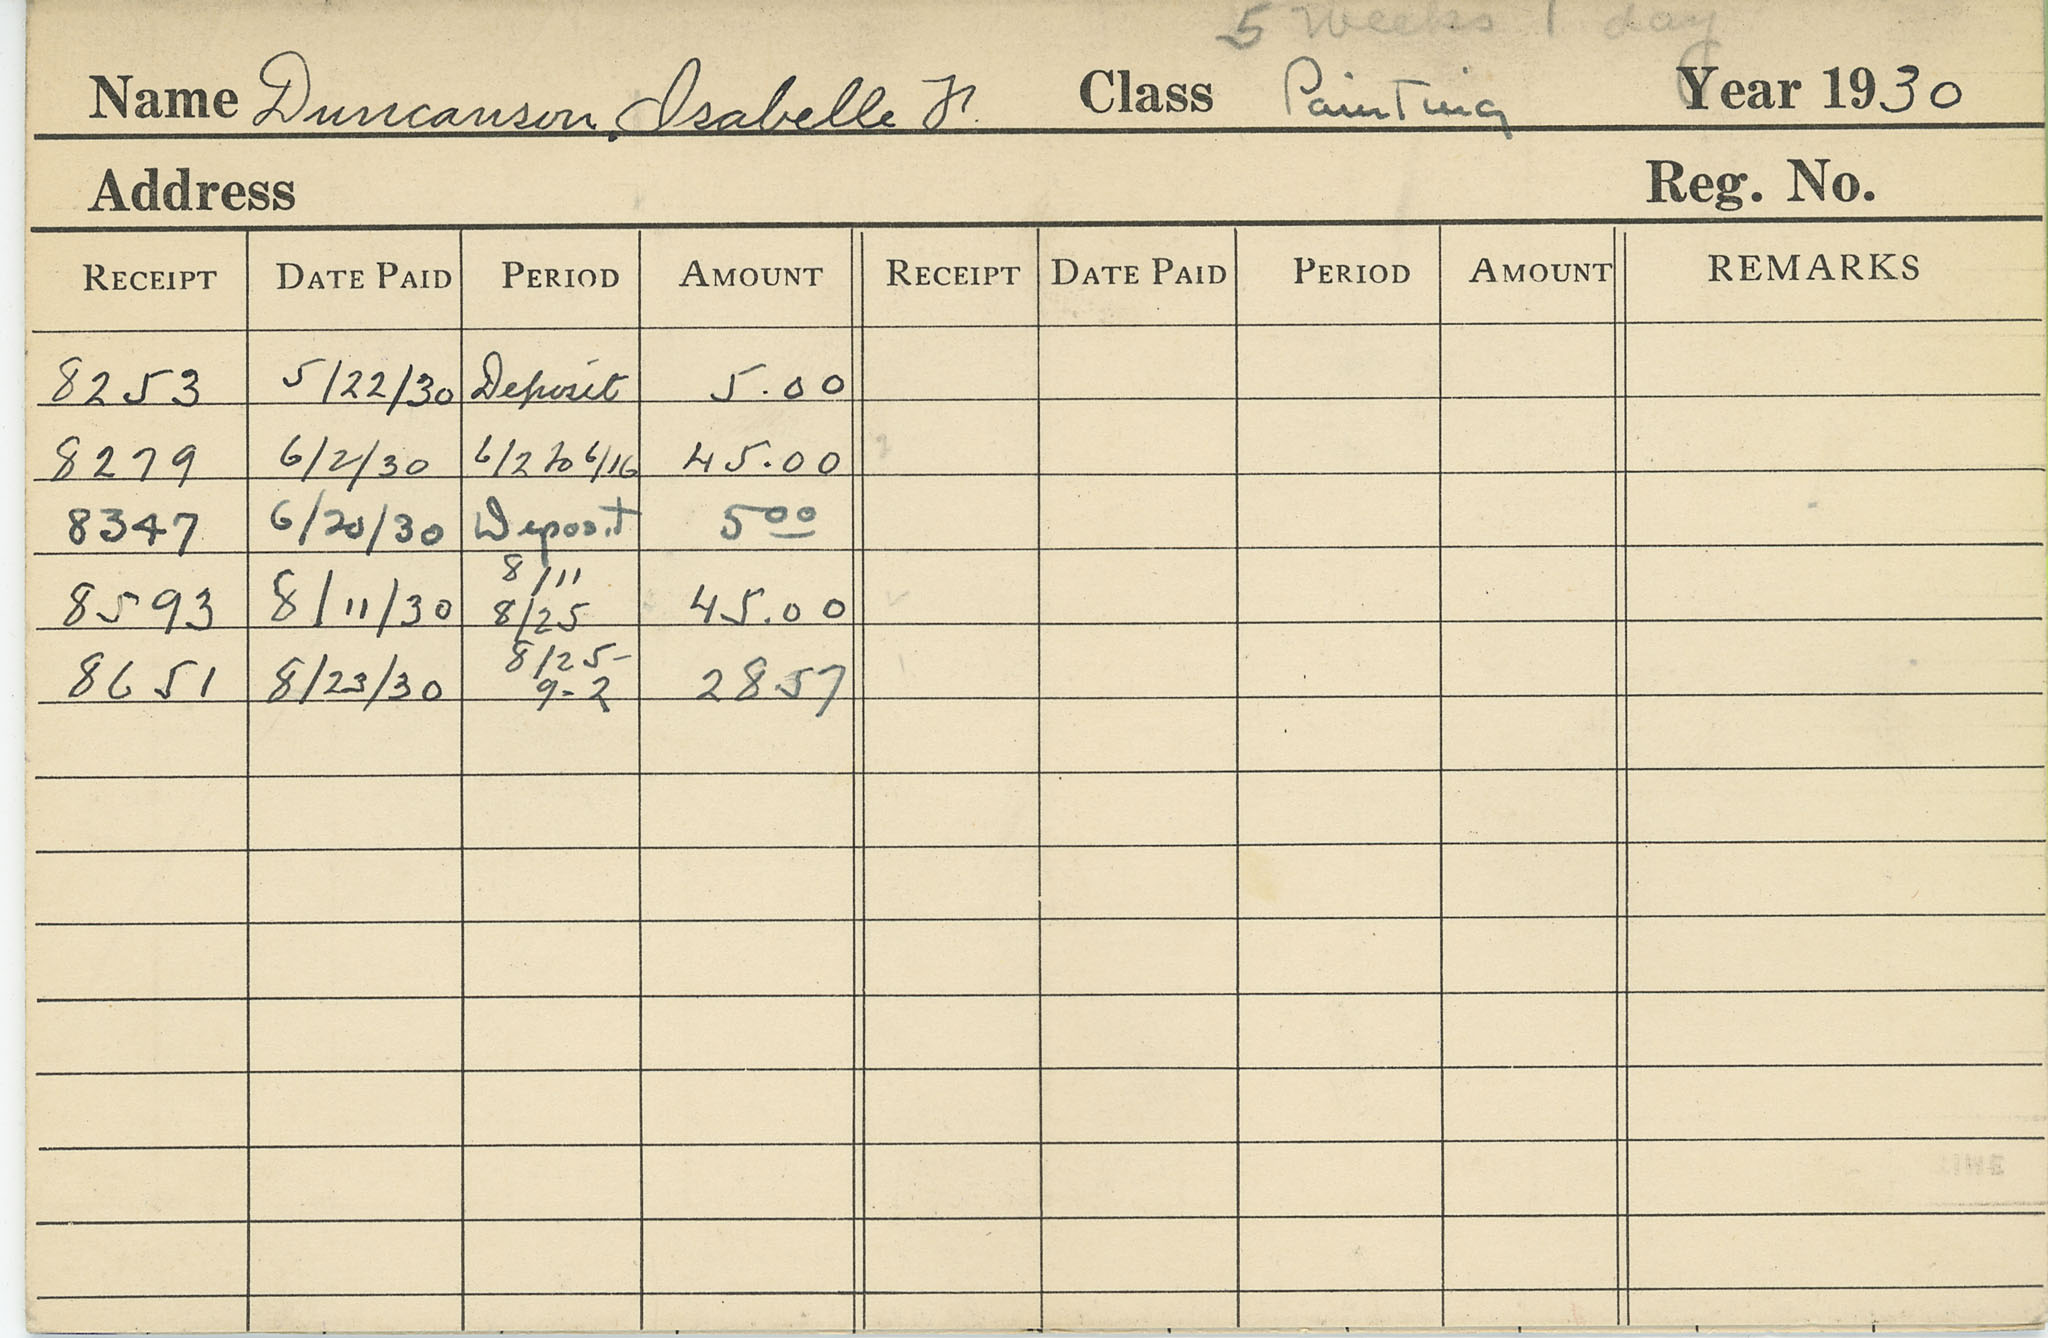 5 weeks 1 day
Name Duncanson, Isabelle F. Class Painting Year 1930
Address Reg. No.
RECEIPT DATE PAID PERIOD AMOUNT RECEIPT DATE PAID PERIOD AMOUNT REMARKS
8253 5/22/30 Deposit 5.00
8279 6/2/30 6/2 to 6/16 45.00
8347 6/20/30 Deposit 5 00
8/11
8593 8/11/30 8/25 45.00
8/25-
8651 8/23/30 9-2 28 57